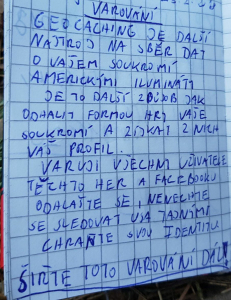 VAROVÁNÍ
GEOCACHING JE DALŠÍ
NÁSTROJ NA SBĚR DAT
O VAŠEM SOUKROMÍ
AMERICKÝMI ILUMINÁTY
JE TO DALŠÍ ZPŮSOB JAK
ODHALIT FORMOU HRY VAŠE
SOUKROMÍ A ZÍSKAT Z NICH
VÁŠ PROFIL.
VARUJI VŠECHNY UŽIVATELE
TĚCHTO HER A FACEBOOKU
ODHLAŠTE SE, NENECHTE
SE SLEDOVAT USA TAJNÝMI
CHRAŇTE SVOU IDENTITU
ŠIŘTE TOTO VAROVÁNÍ DÁL!